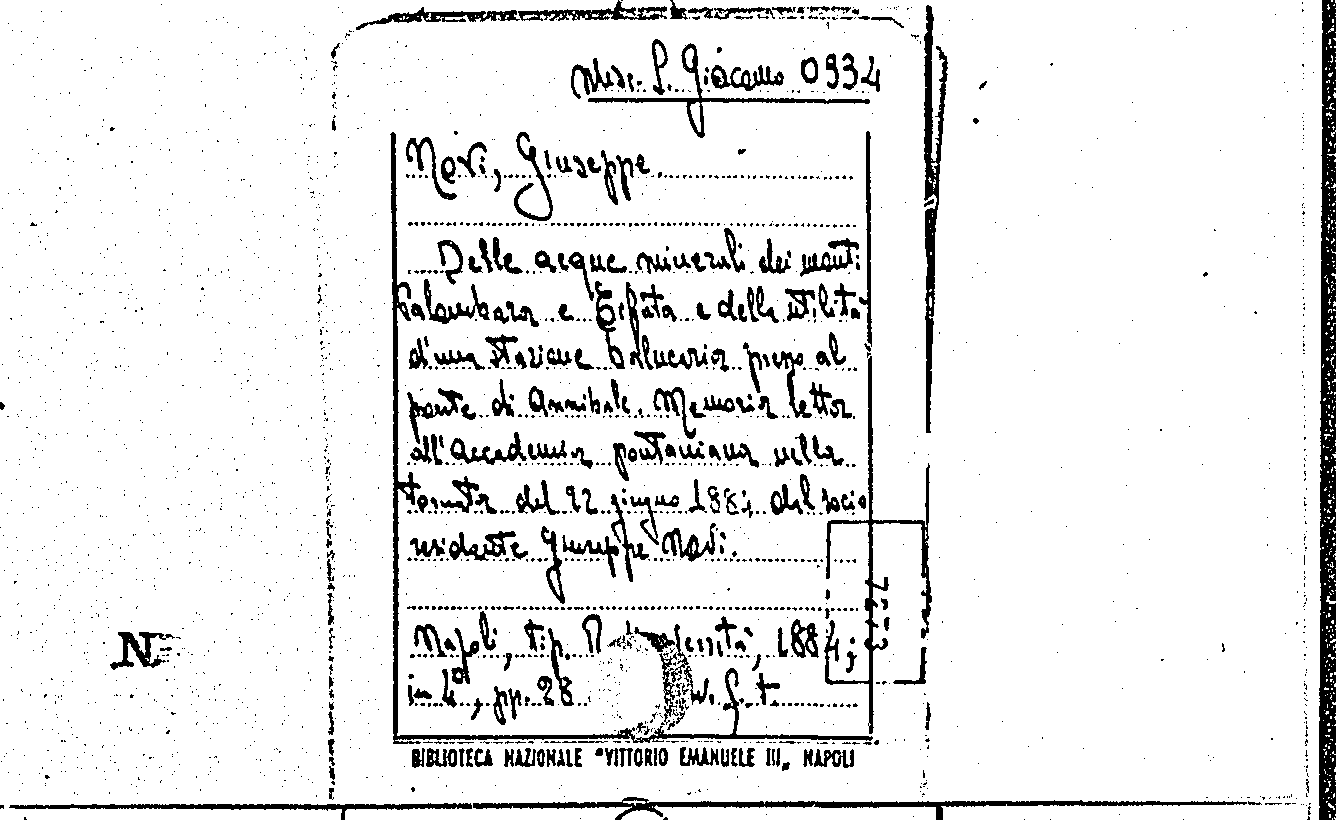 Misc. S. Giacomo 0934
Novi, Giuseppe.
Delle acque minerali dei monti
Palombara e Tifata e della utilità
d'una stazione balnearia presso al
ponte di Annibale. Memoria letta
all'Accademia pontaniana nella
tornata del 22 giugno 1884 dal socio
residente Giuseppe Novi.
N
Napoli, tip. Università, 1884;
in 4°, pp. 28 f. t.
BIBLIOTECA NAZIONALE "VITTORIO EMANUELE III„ NAPOLI